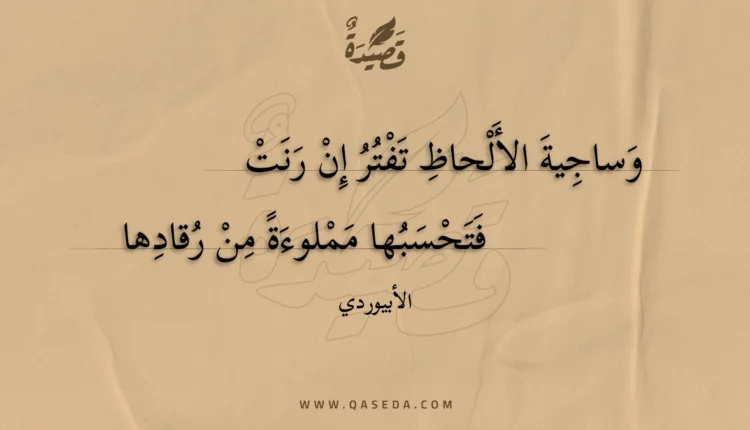 قَصِيْدَةٌ
وَساجِيةَ الأَلْحاظِ تَفْتُرُ إِنْ رَنَتْ
فَتَحْسَبُها مَمْلوءَةً مِنْ رُقادِها
الأبيوردي
WWW.QASEDA.COM